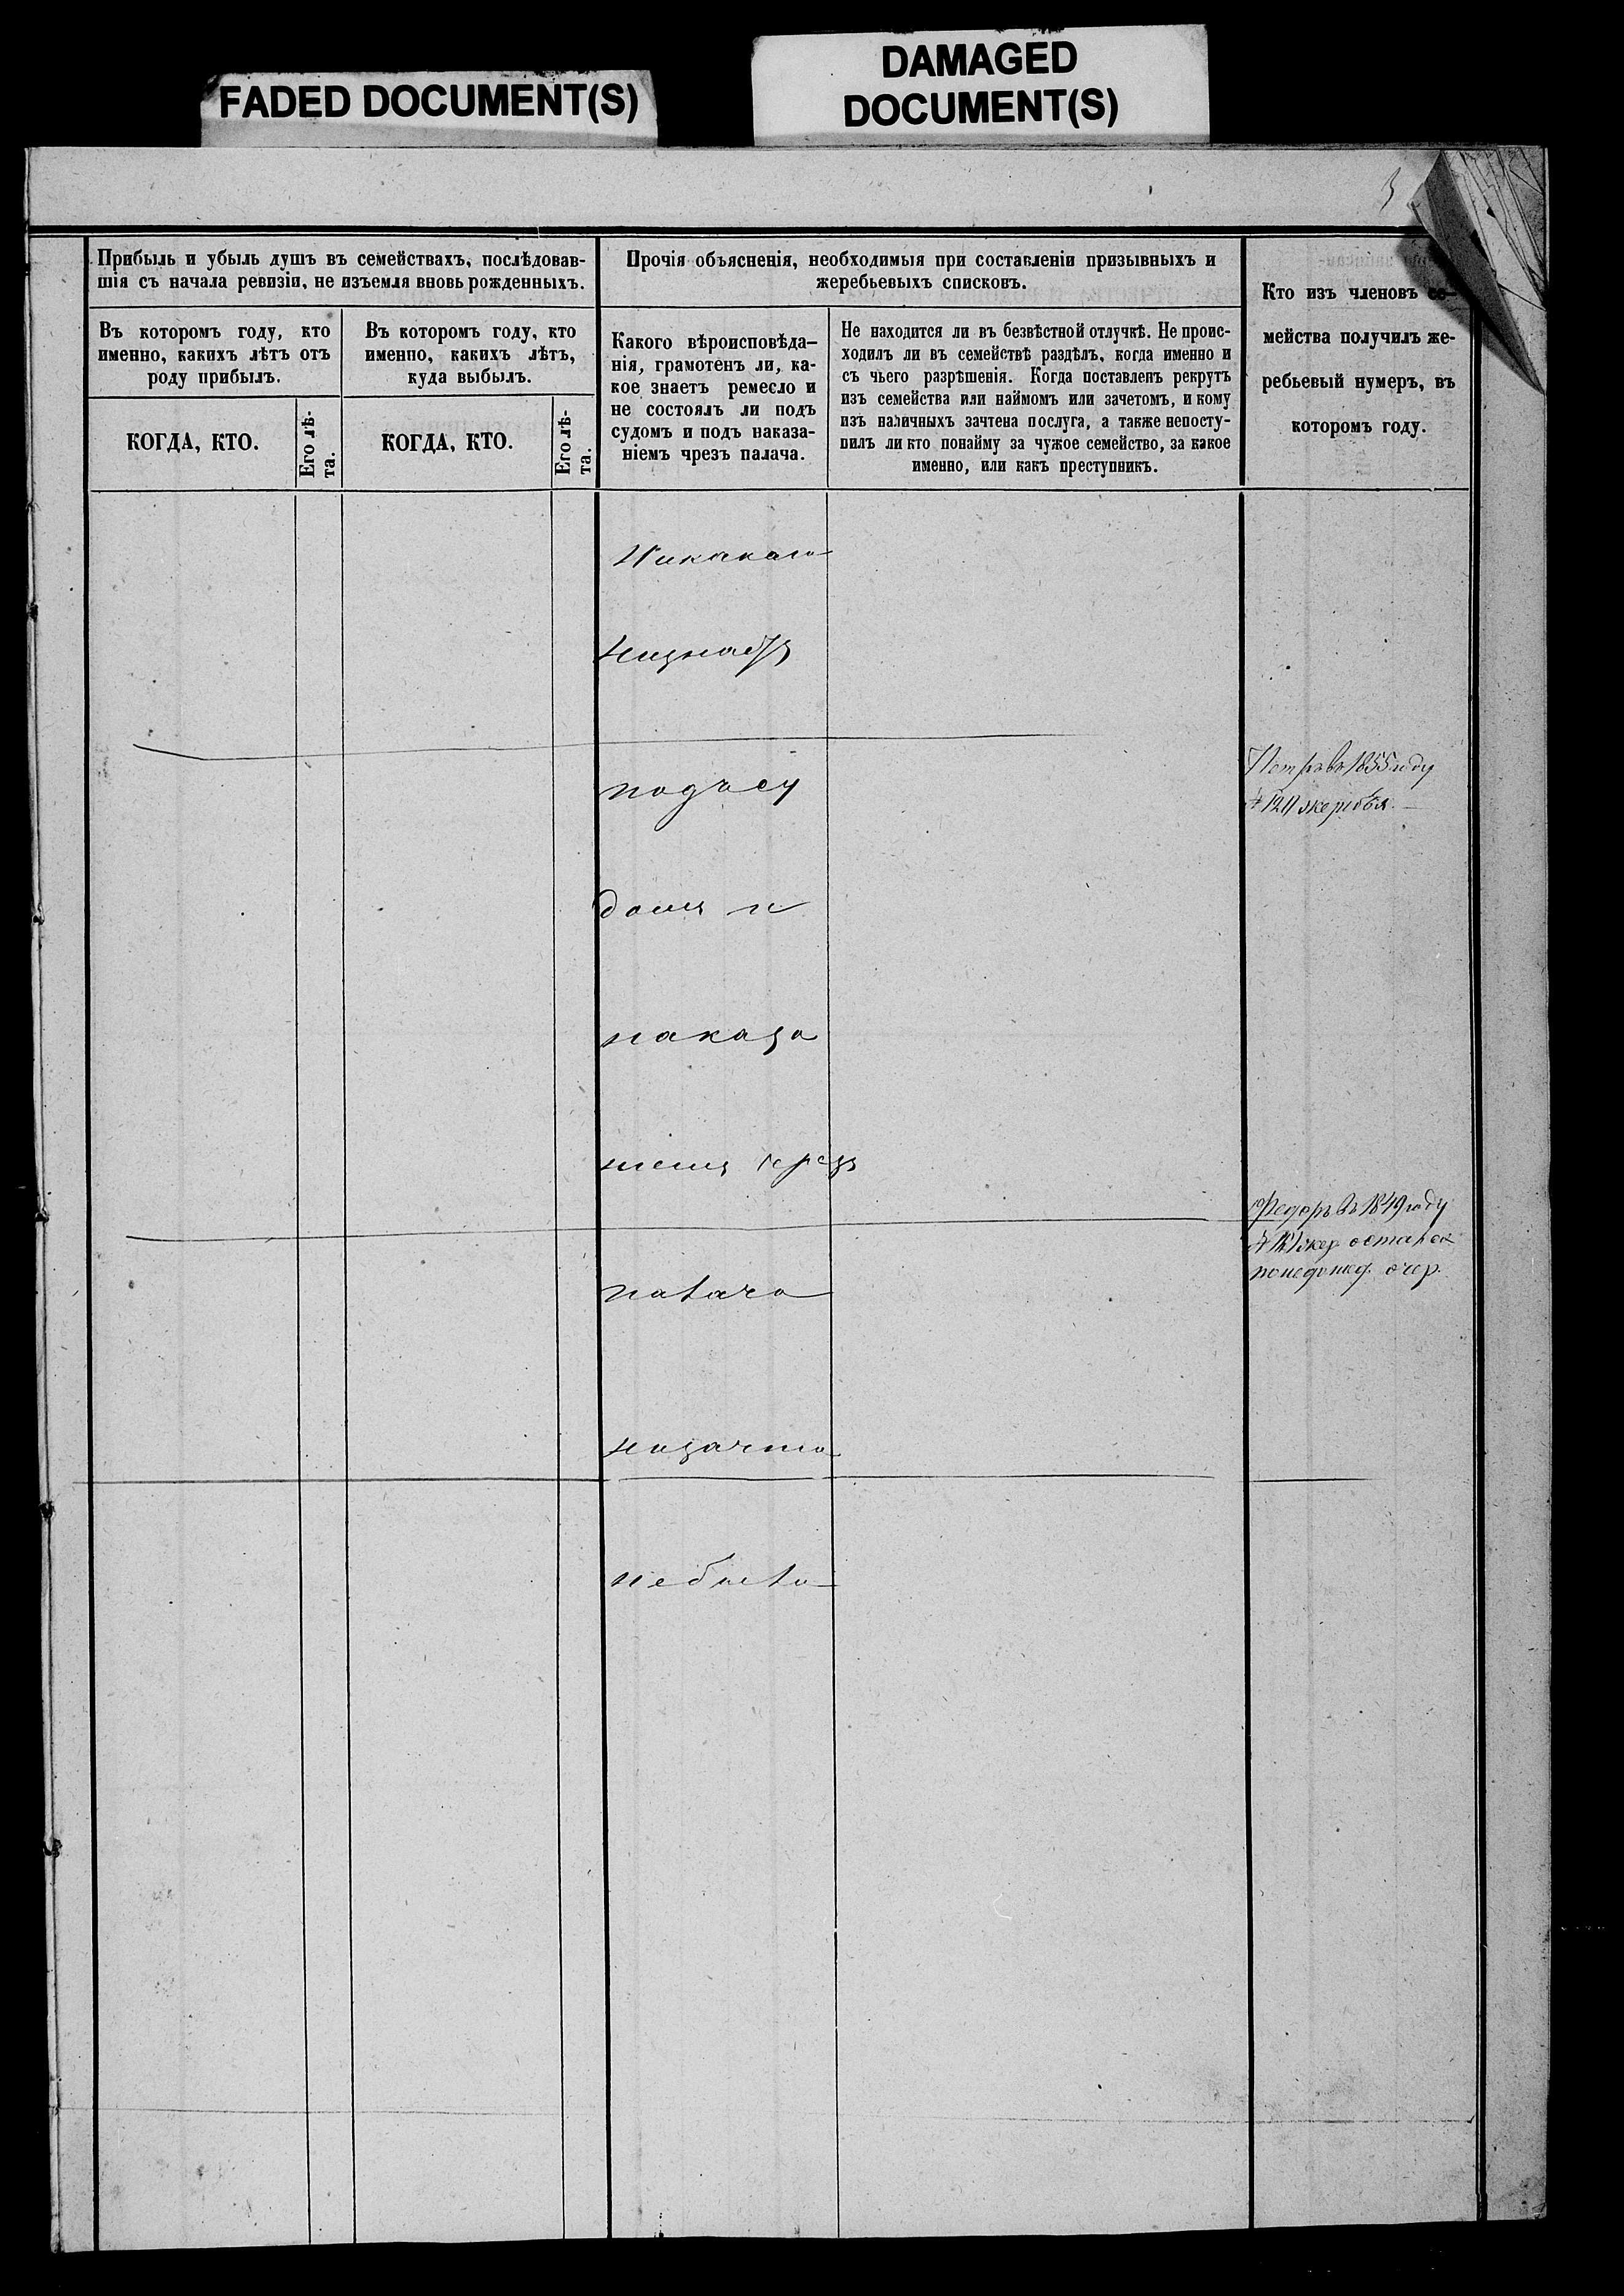 FADED DOCUMENT(S)
DAMAGED
DOCUMENT(S)
3
Прибыль и убыль душъ въ семействахъ, послѣдовав-
шія съ начала ревизіи, не изъемля вновь рожденныхъ.
Въ которомъ году, кто
именно, какихъ лѣтъ отъ
роду прибылъ.
КОГДА, КТО.
Его лѣ-
та.
Въ которомъ году, кто
именно, какихъ лѣтъ,
куда выбылъ.
КОГДА, КТО.
Его лѣ-
та.
Прочія объясненія, необходимыя при составленіи призывныхъ и
жеребьевыхъ списковъ.
Какого вѣроисповѣда-
нія, грамотенъ ли, ка-
кое знаетъ ремесло и
не состоялъ ли подъ
судомъ и подъ наказа-
ніемъ чрезъ палача.
Не находится ли въ безвѣстной отлучкѣ. Не проис-
ходилъ ли въ семействѣ раздѣлъ, когда именно и
съ чьего разрѣшенія. Когда поставленъ рекрутъ
изъ семейства или наймомъ или зачетомъ, и кому
изъ наличныхъ зачтена послуга, а также непосту-
пилъ ли кто понайму за чужое семейство, за какое
именно, или какъ преступникъ.
Кто изъ членовъ се-
мейства получилъ же-
ребьевый нумеръ, въ
которомъ году.
Никакаго
подъ су
Петръ въ 1855 году
жеребья.
домъ и
наказа
ніемъ чрезъ
Федоръ въ 1849 году
жер. остался
очер.
палача
низачто
небыло